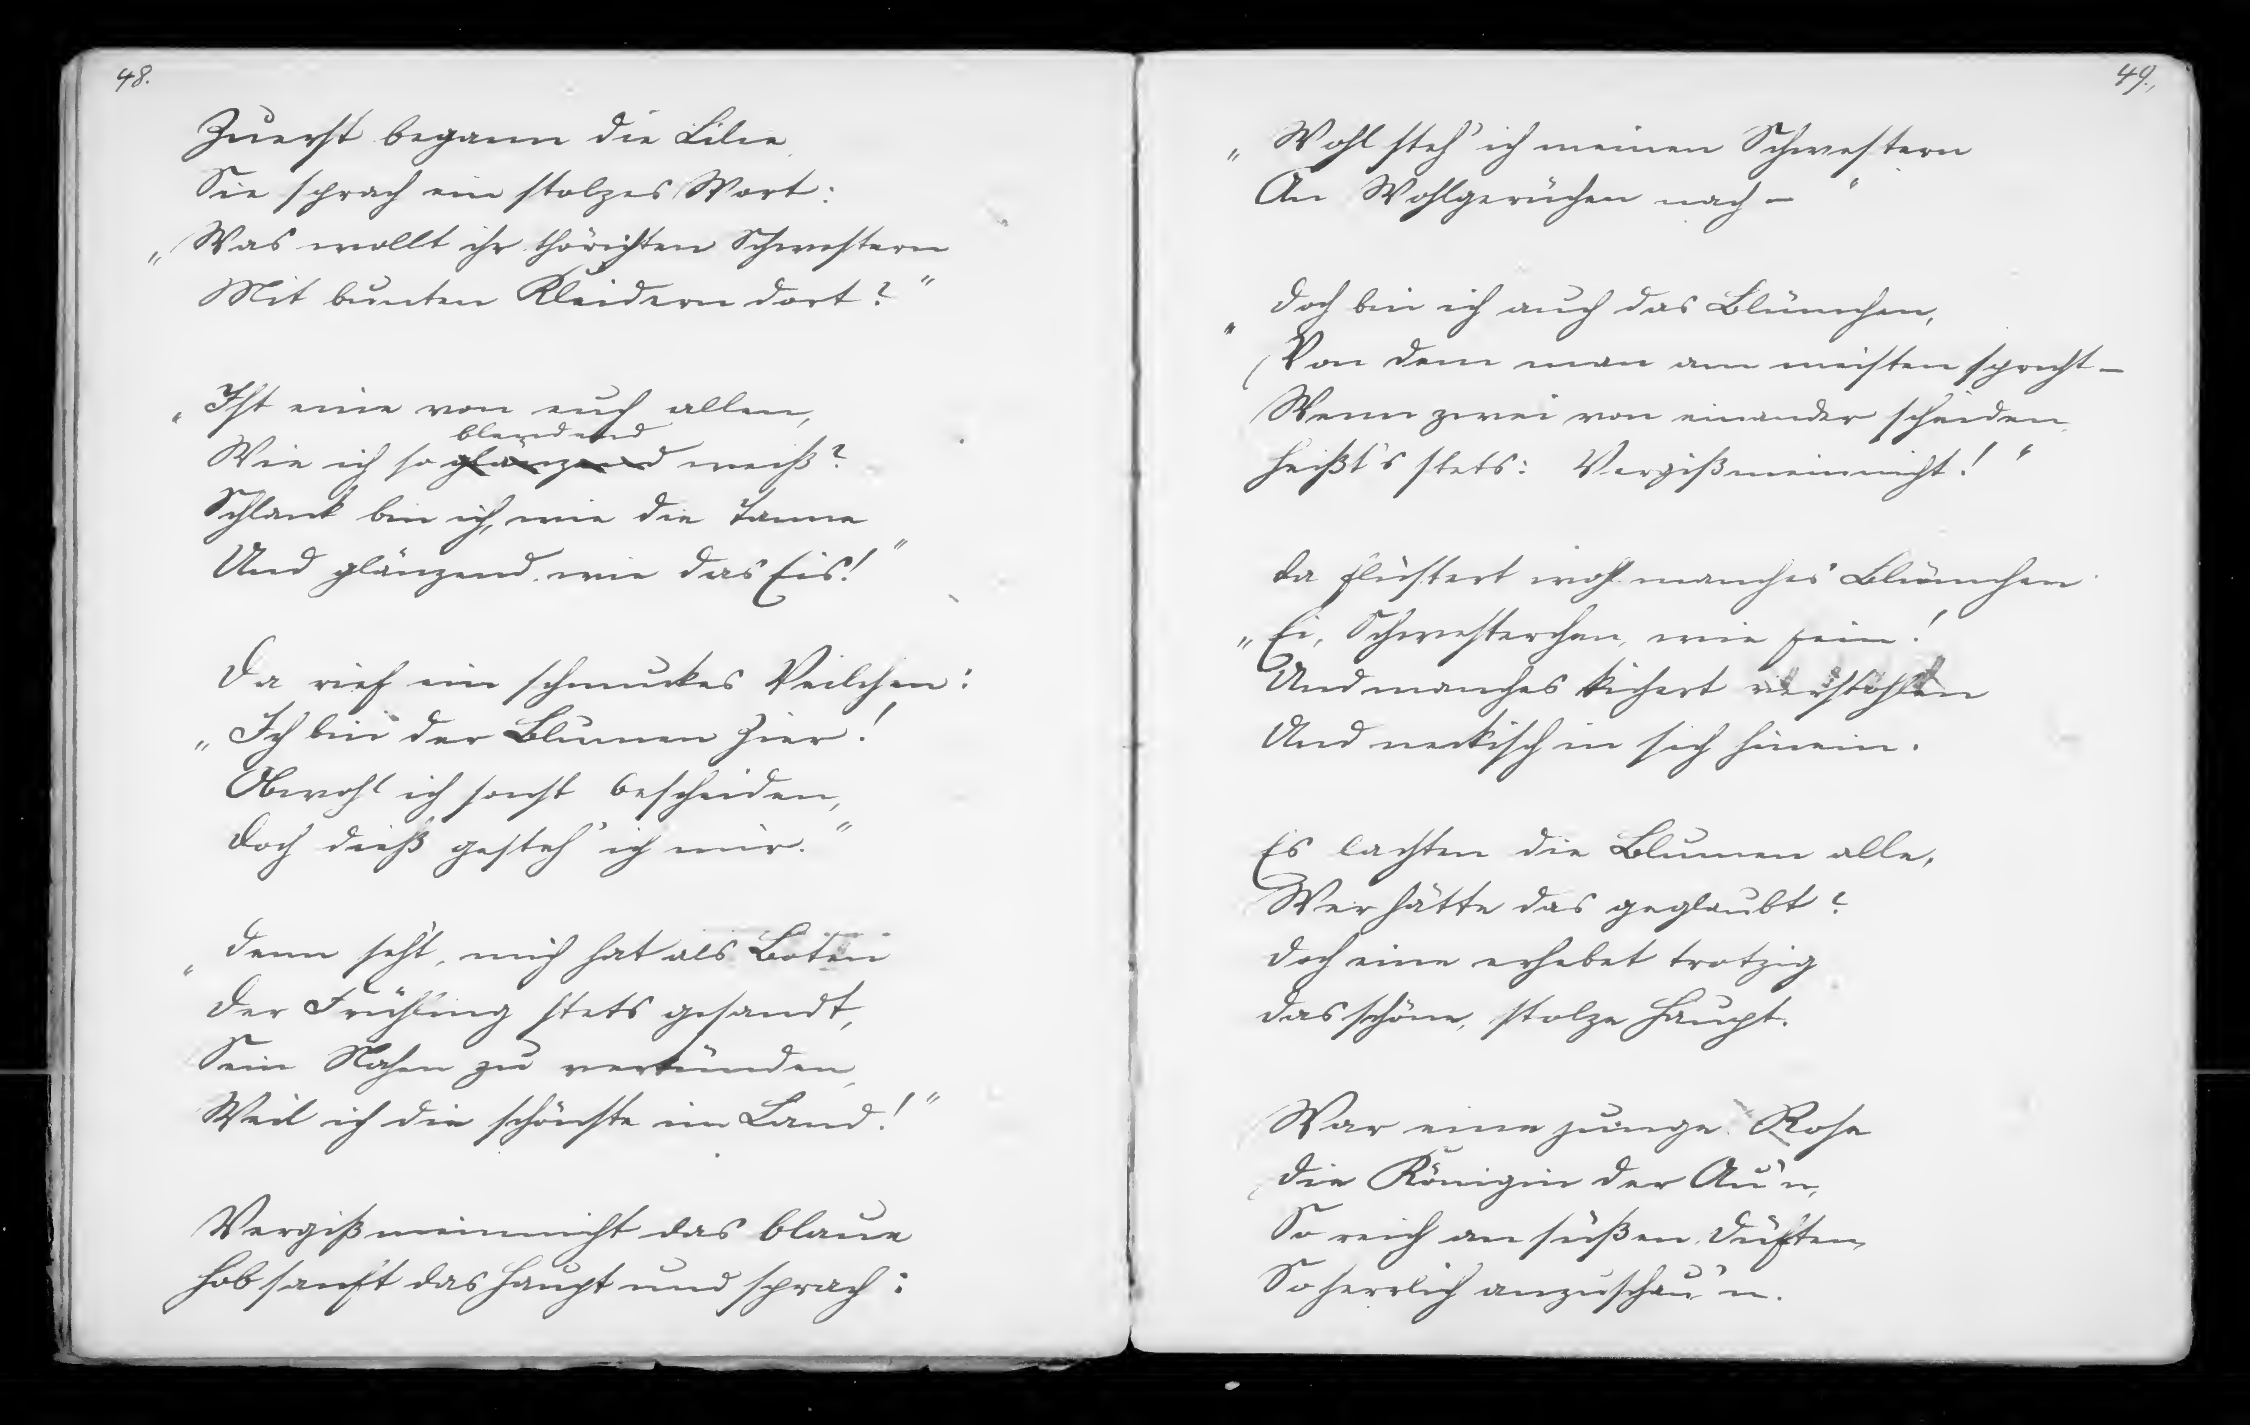 48.
Zuerst begann die Lilie
Sie sprach ein stolzes Wort:
„Was wollt ihr thörichten Schwestern
Mit bunten Kleidern dort?"
„Ist eine von euch allen,
blendend
Wie ich so glänzend weiß?
Schlank bin ich, wie die Tanne
Und glänzend wie das Eis!"
Da rief ein schmuckes Veilchen:
„Ich bin der Blumen Zier!
Obwohl ich sonst bescheiden,
Doch dieß gesteh' ich mir."
„Denn seht, mich hat als Botin
Der Frühling stets gesandt,
Sein Nahen zu verkünden,
Weil ich die schönste im Land!"
Vergißmeinnicht das blaue
Hob sanft das Haupt und sprach:
49.,
„Wohl steh' ich meinen Schwestern
An Wohlgerüchen nach – "
„Doch bin ich auch das Blümchen,
Von dem man am meisten spricht –
Wenn zwei von einander scheiden,
Heißt's stets: Vergißmeinnicht!"
Da flüstert wohl manches Blümchen
„Ei, Schwesterchen, wie fein!
Und manches kichert verstohlen
Und neckisch in sich hinein.
Es lachten die Blumen alle,
Wer hätte das geglaubt?
Doch eine erhebet trotzig
Das schöne, stolze Haupt.
War eine junge Rose
Die Königin der Au'n,
So reich an süßen Düften,
So herrlich anzuschau'n.